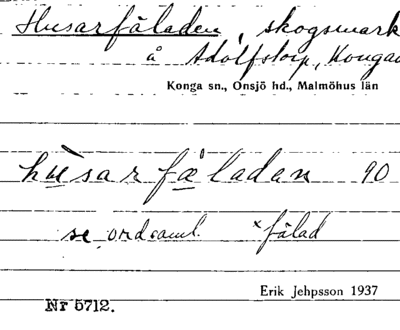 Husarfåladen, skogsmark
å Adolfstorp, Konga
Konga sn., Onsjö hd., Malmöhus län
hùsarfæ̊laden 90
se ordsaml. ˣfålad
Erik Jehpsson 1937
Nr 5712.